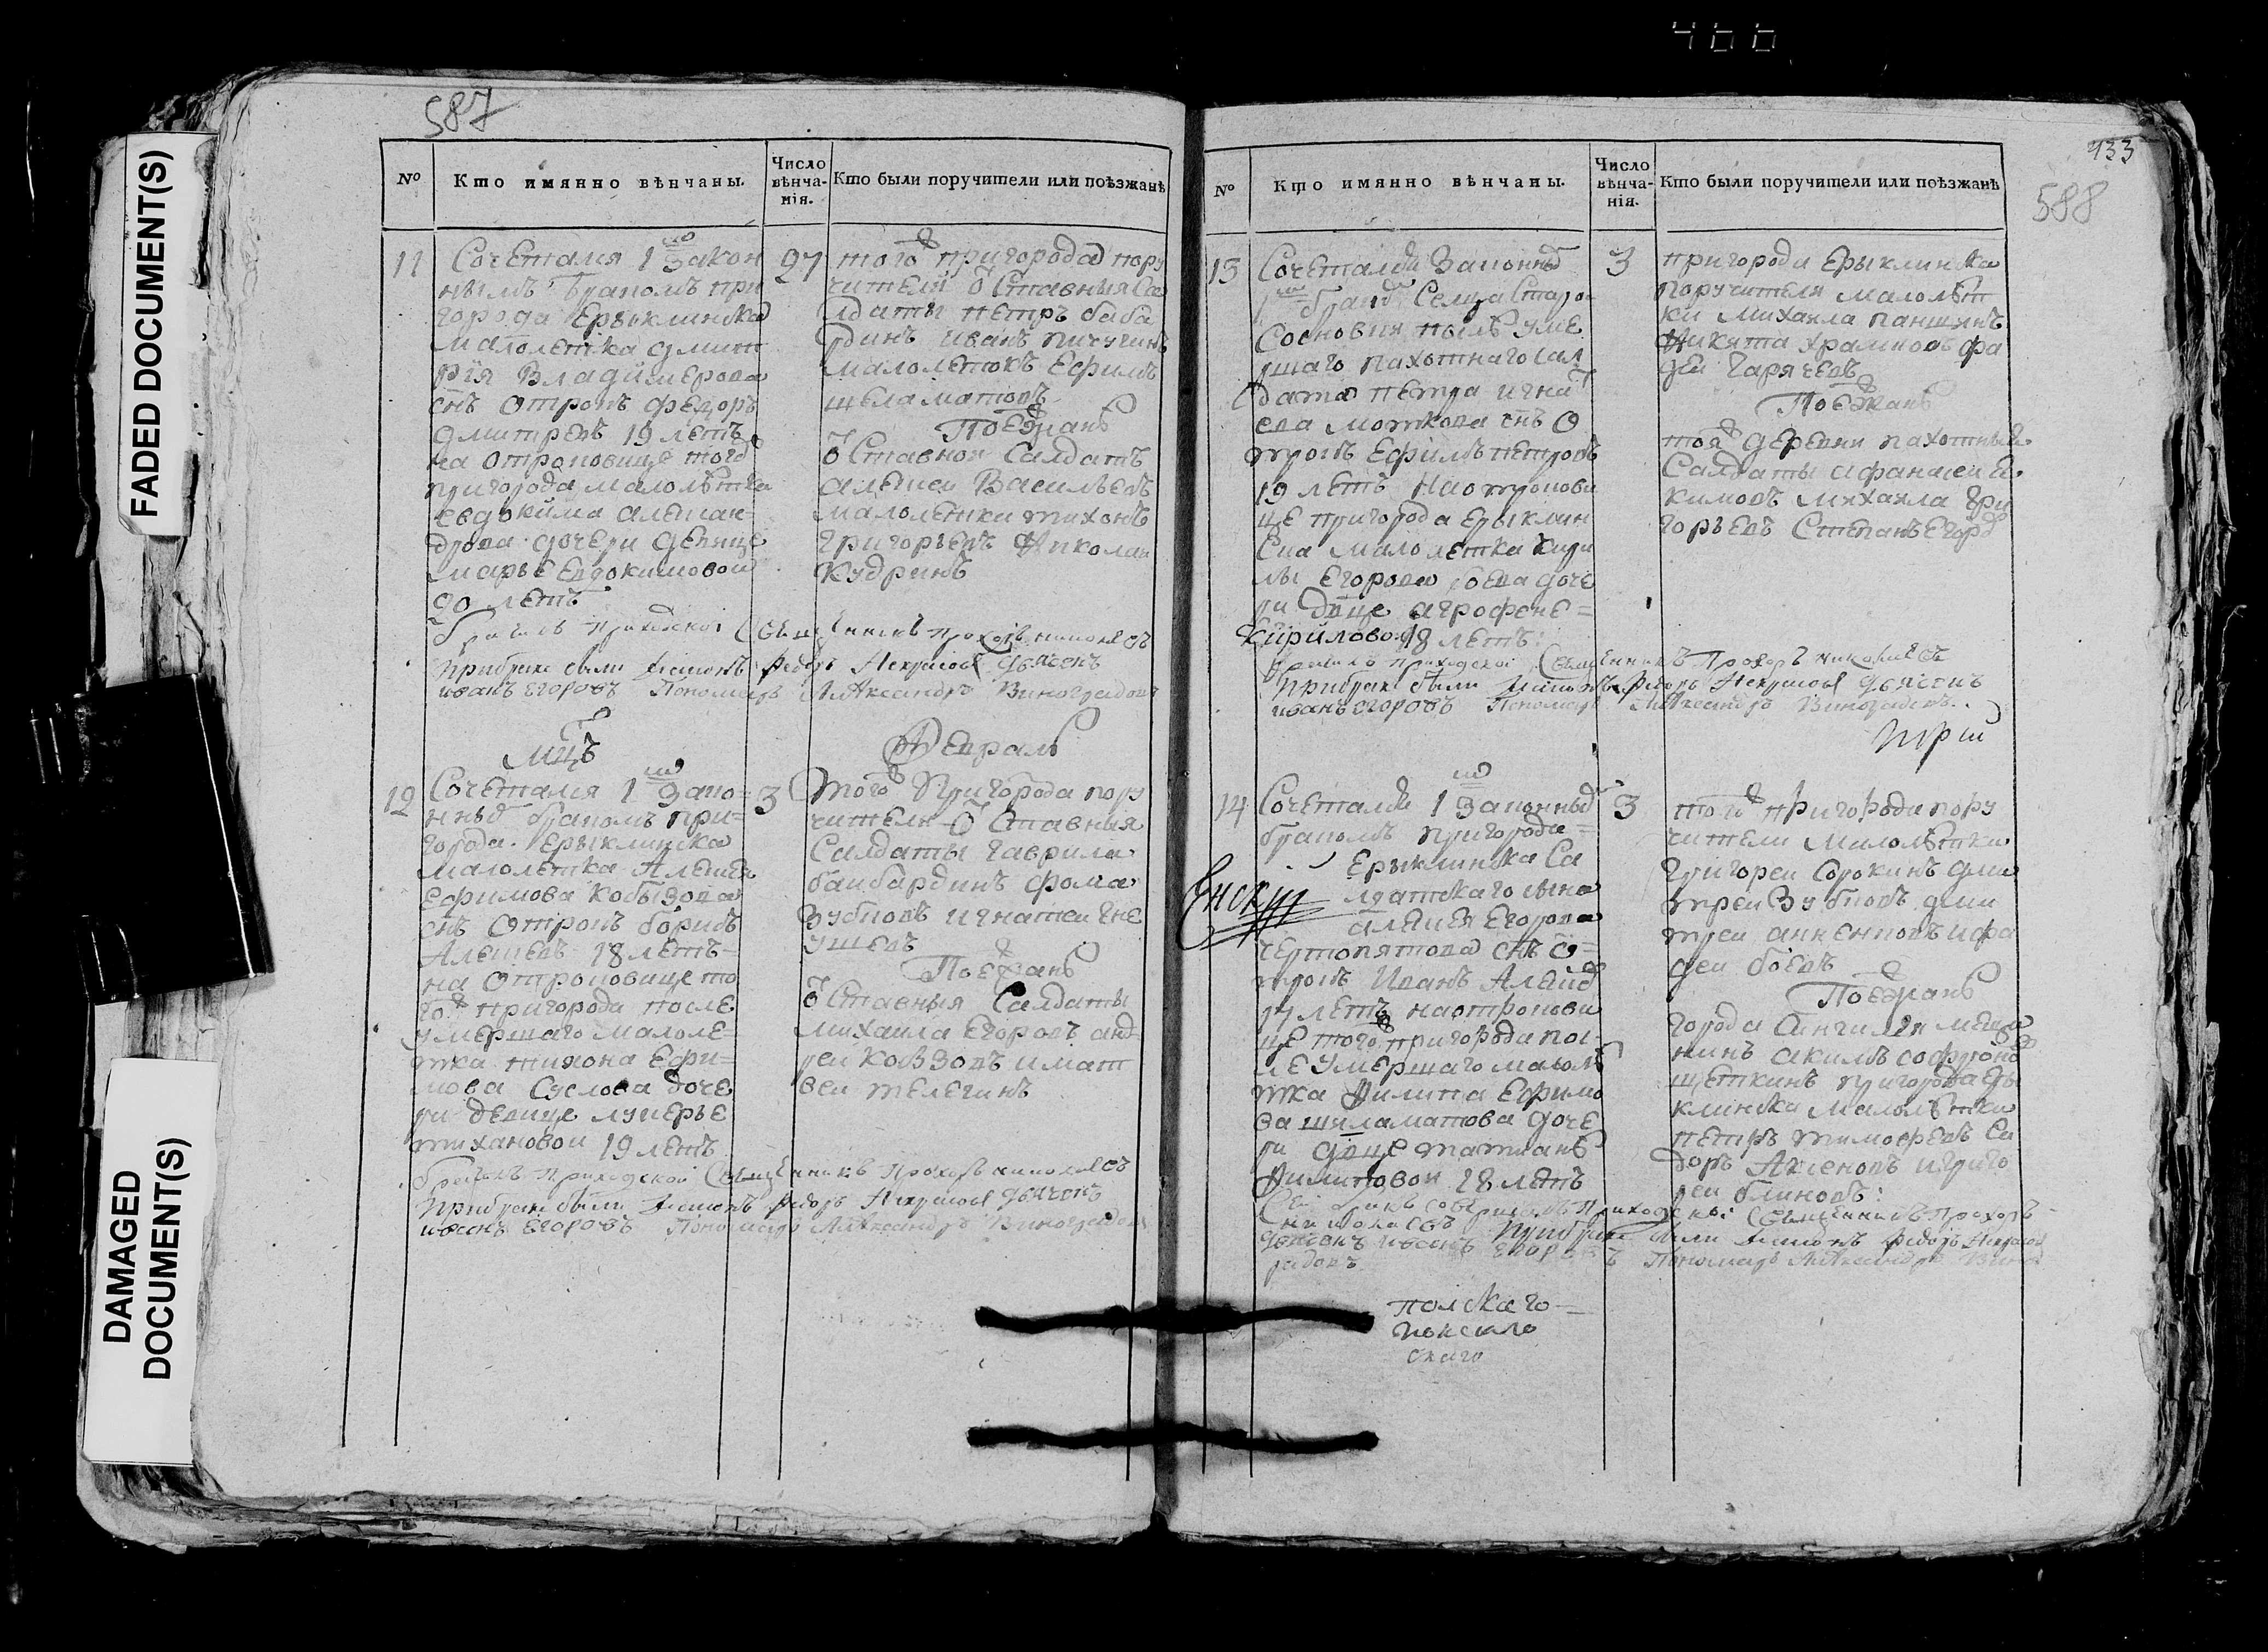 466
587
№
Кто имянно вѣнчаны.
Число вѣнча-нія.
Кто были поручители или поѣзжанѣ
11
Сочетался 1 м закон
нымъ бракомъ при
города Ерыклинска
малолетка дмит
рия Владимерова
снъ отрокъ федоръ
дмитревъ 19 летъ
на отроковице того
пригорода малолѣтка
евдокима алексан-
дрова дочери девице
марье Евдокимовой
20 летъ
27
того ж пригорода пору
чители отставныя са
лдаты петръ баба
рдинъ иванъ пичугинъ
малолетокъ Ефимъ
шеламатовъ
Поезжанѣ
отставной Салдатъ
алексеи Васильевъ
малолетки тихонъ
григорьевъ николаи
кудринъ
приходской Священникъ прохоръ николаевъ
при браке были диаконъ федоръ Некрасовъ дьячокъ
иванъ егоровъ Пономарь Александръ Виноградовъ
мцъ
Февраль
12
Сочетался 1 м зако-
нны бракомъ при-
города Ерыклинска
малолетка Алексея
ефимова Кобызова
снъ отрокъ борисъ
Алексевъ 18 летъ-
на отроковице то
го ж пригорода после
умершаго малоле-
тка тихона Ефи-
мова Суслова доче
ри девице лукерье
тихановои 19 летъ
3
того ж Пригорода пору
чители отставныя
Салдаты гаврила
баибардинъ фома
Зубковъ игнатеи гне
ушевъ
Поезжанѣ
отставныя Салдаты
михаила Егоровъ анд
реи Кобзовъ и мат
веи телегинъ
приходской Священникъ прохоръ николаевъ
при браке были диаконъ федоръ Некрасовъ дьячокъ
иванъ егоровъ Пономарь Александръ Виноградовъ
433
588
№
Кто имянно вѣнчаны.
Число вѣнча-нія.
Кто были поручители или поѣзжанѣ
13
Сочетался Законны
1 м бракъ Селца Старо-
Сосновки уме
ршаго пахотнаго Сал
дата петра игнат
ева моткова снъ о
трокъ Ефимъ петровъ
19 летъ на отрокови
це пригорода Ерыклин
ска малолетка кири
лы егорова боева доче
ри дѣвце агрофене=
Кириловой 18 летъ:
3
пригорода Ерыклинска
поручителя малолѣт
ки михаила паншинъ
Никита храмковъ фа
деи Гарячевъ
Поезжанѣ
тоя ж деревни пахотныя
Салдаты афанасеи а
кимовъ михаила Гри
горьевъ Степанъ Егоро
приходской Священникъ Прохоръ николаевъ
при браке были диаконъ федоръ Некрасовъ дьячокъ
иванъ егоровъ Пономарь Александръ Виноградовъ
14
Сочетался 1 м Законны
бракомъ пригорода=
Ерыклинска Са
лдатскаго сына
алексея Егорова
чертопятова снъ о=
трокъ Иванъ Алексе
17 летъ на отрокови
це того ж пригорода пос-
ле умершаго малолѣ
тка Филипа Ефимо
ва шиламатова доче
ри дѣвце татиянѣ
Филиповои 18 летъ
3
того ж пригорода пору
чители малолѣтки
григореи Сорокинъ дми
треи Зубковъ дми
треи анненковъ и фа
деи боевъ
Поезжанѣ
города Сингилея меща
нинъ акимъ софроно
щеткинъ пригорода Еры
клинска малолѣтки
петръ тимофеевъ Си
доръ Аксеновъ и григо
реи блиновъ:
Сей бракъ совершилъ Приходской Священникъ Прохоръ
николаевъ При браке были диаконъ федоръ Некрасовъ
дьячокъ иванъ егоровъ Пономарь Александръ Виног
радовъ